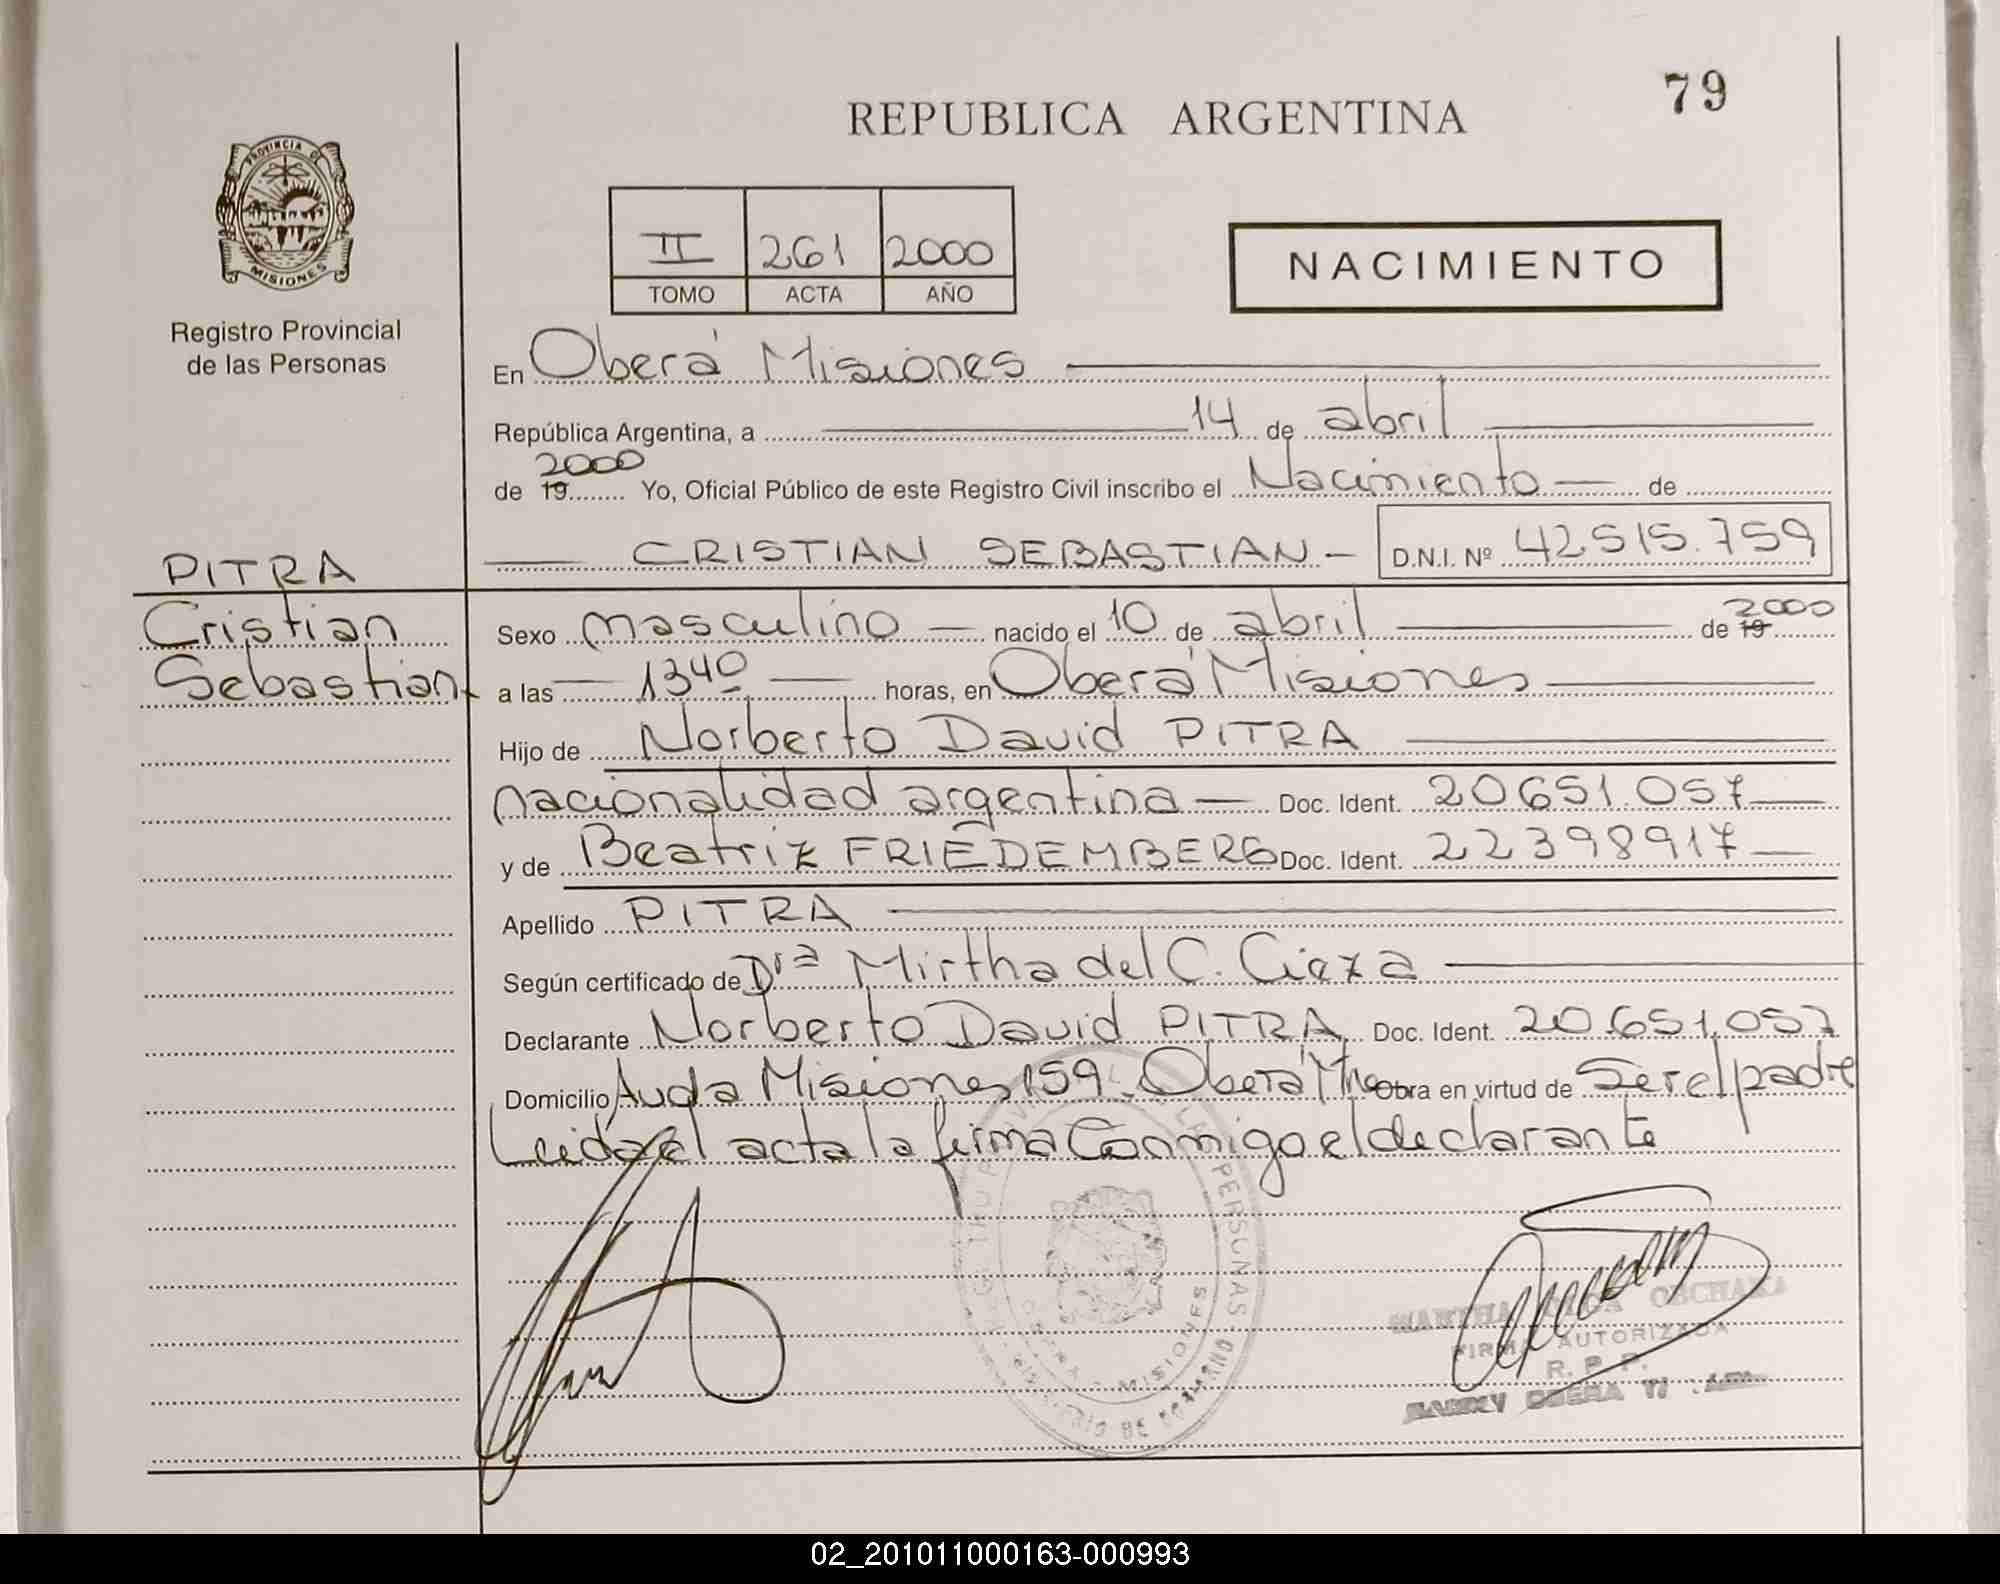 79
REPUBLICA ARGENTINA
PROVINCIA DE
MISIONES
Registro Provincial
de las Personas
II 261 2000
TOMO ACTA AÑO
NACIMIENTO
En Oberá Misiones
República Argentina, a 14 de abril
2000
de 19 Yo, Oficial Público de este Registro Civil inscribo el Nacimiento de
CRISTIAN SEBASTIAN - D.N.I. Nº 42515.759
PITRA
Cristian
Sebastian
Sexo masculino nacido el 10 de abril de 19 2000
a las 1340 horas, en Oberá Misiones
Hijo de Norberto David PITRA
nacionalidad argentina Doc. Ident. 20651.057
y de Beatriz FRIEDEMBERG Doc. Ident. 22398917
Apellido PITRA
Según certificado de Dra Mirtha del C. Cieza
Declarante Norberto David PITRA Doc. Ident. 20.651.057
Domicilio Avda Misiones 159, Oberá Mnes Obra en virtud de Ser el padre
Leida el acta la firma Conmigo el declarante
PERSONAS
MISIONES
MARTHA OLGA OBCHAKA
FIRMA AUTORIZADA
R. P. P.
OBERA
02_201011000163-000993